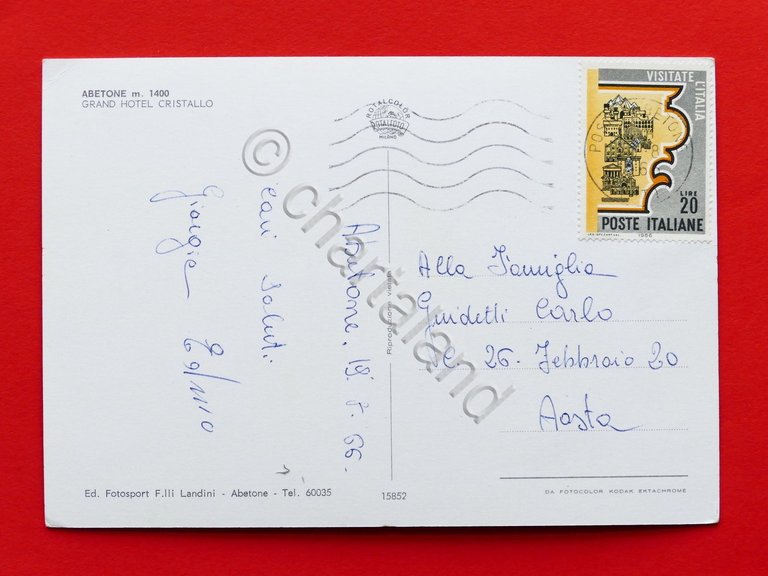 ABETONE m. 1400
GRAND HOTEL CRISTALLO
ROTALCOLOR
ROTALFOTO
MILANO
VISITATE L'ITALIA
LIRE
20
POSTE ITALIANE
1966
Abetone, 18. 8. 66.
Cari saluti
Giorgia
Alla Famiglia
Guidetti Carlo
26 Febbraio 20
Aosta
Riproduzione vietata
Ed. Fotosport F.lli Landini - Abetone - Tel. 60035
15852
DA FOTOCOLOR KODAK EKTACHROME
© chartaland